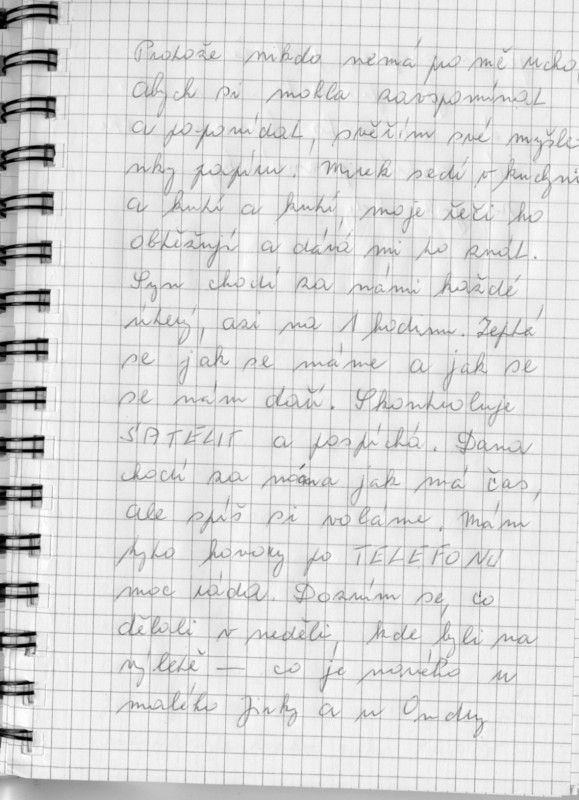 Protože nikdo nemá pro mě ucho
abych si mohla zavzpomínat
a popovídat, svěřím své myšle
nky papíru. Mirek sedí v kuchyni
a kouří a kouří, moje řeči ho
obtěžují a dává mi to znát.
Syn chodí za námi každé
úterý, asi na 1 hodinu. Zeptá
se jak se máme a jak se
se nám daří. Skontroluje
SATELIT a pospíchá. Dana
chodí za náma jak má čas,
ale spíš si voláme. Mám
tyto hovory po TELEFONU
moc ráda. Dozvím se, co
dělali v neděli, kde byli na
výletě — co je nového u
malého Jirky a u Ondry